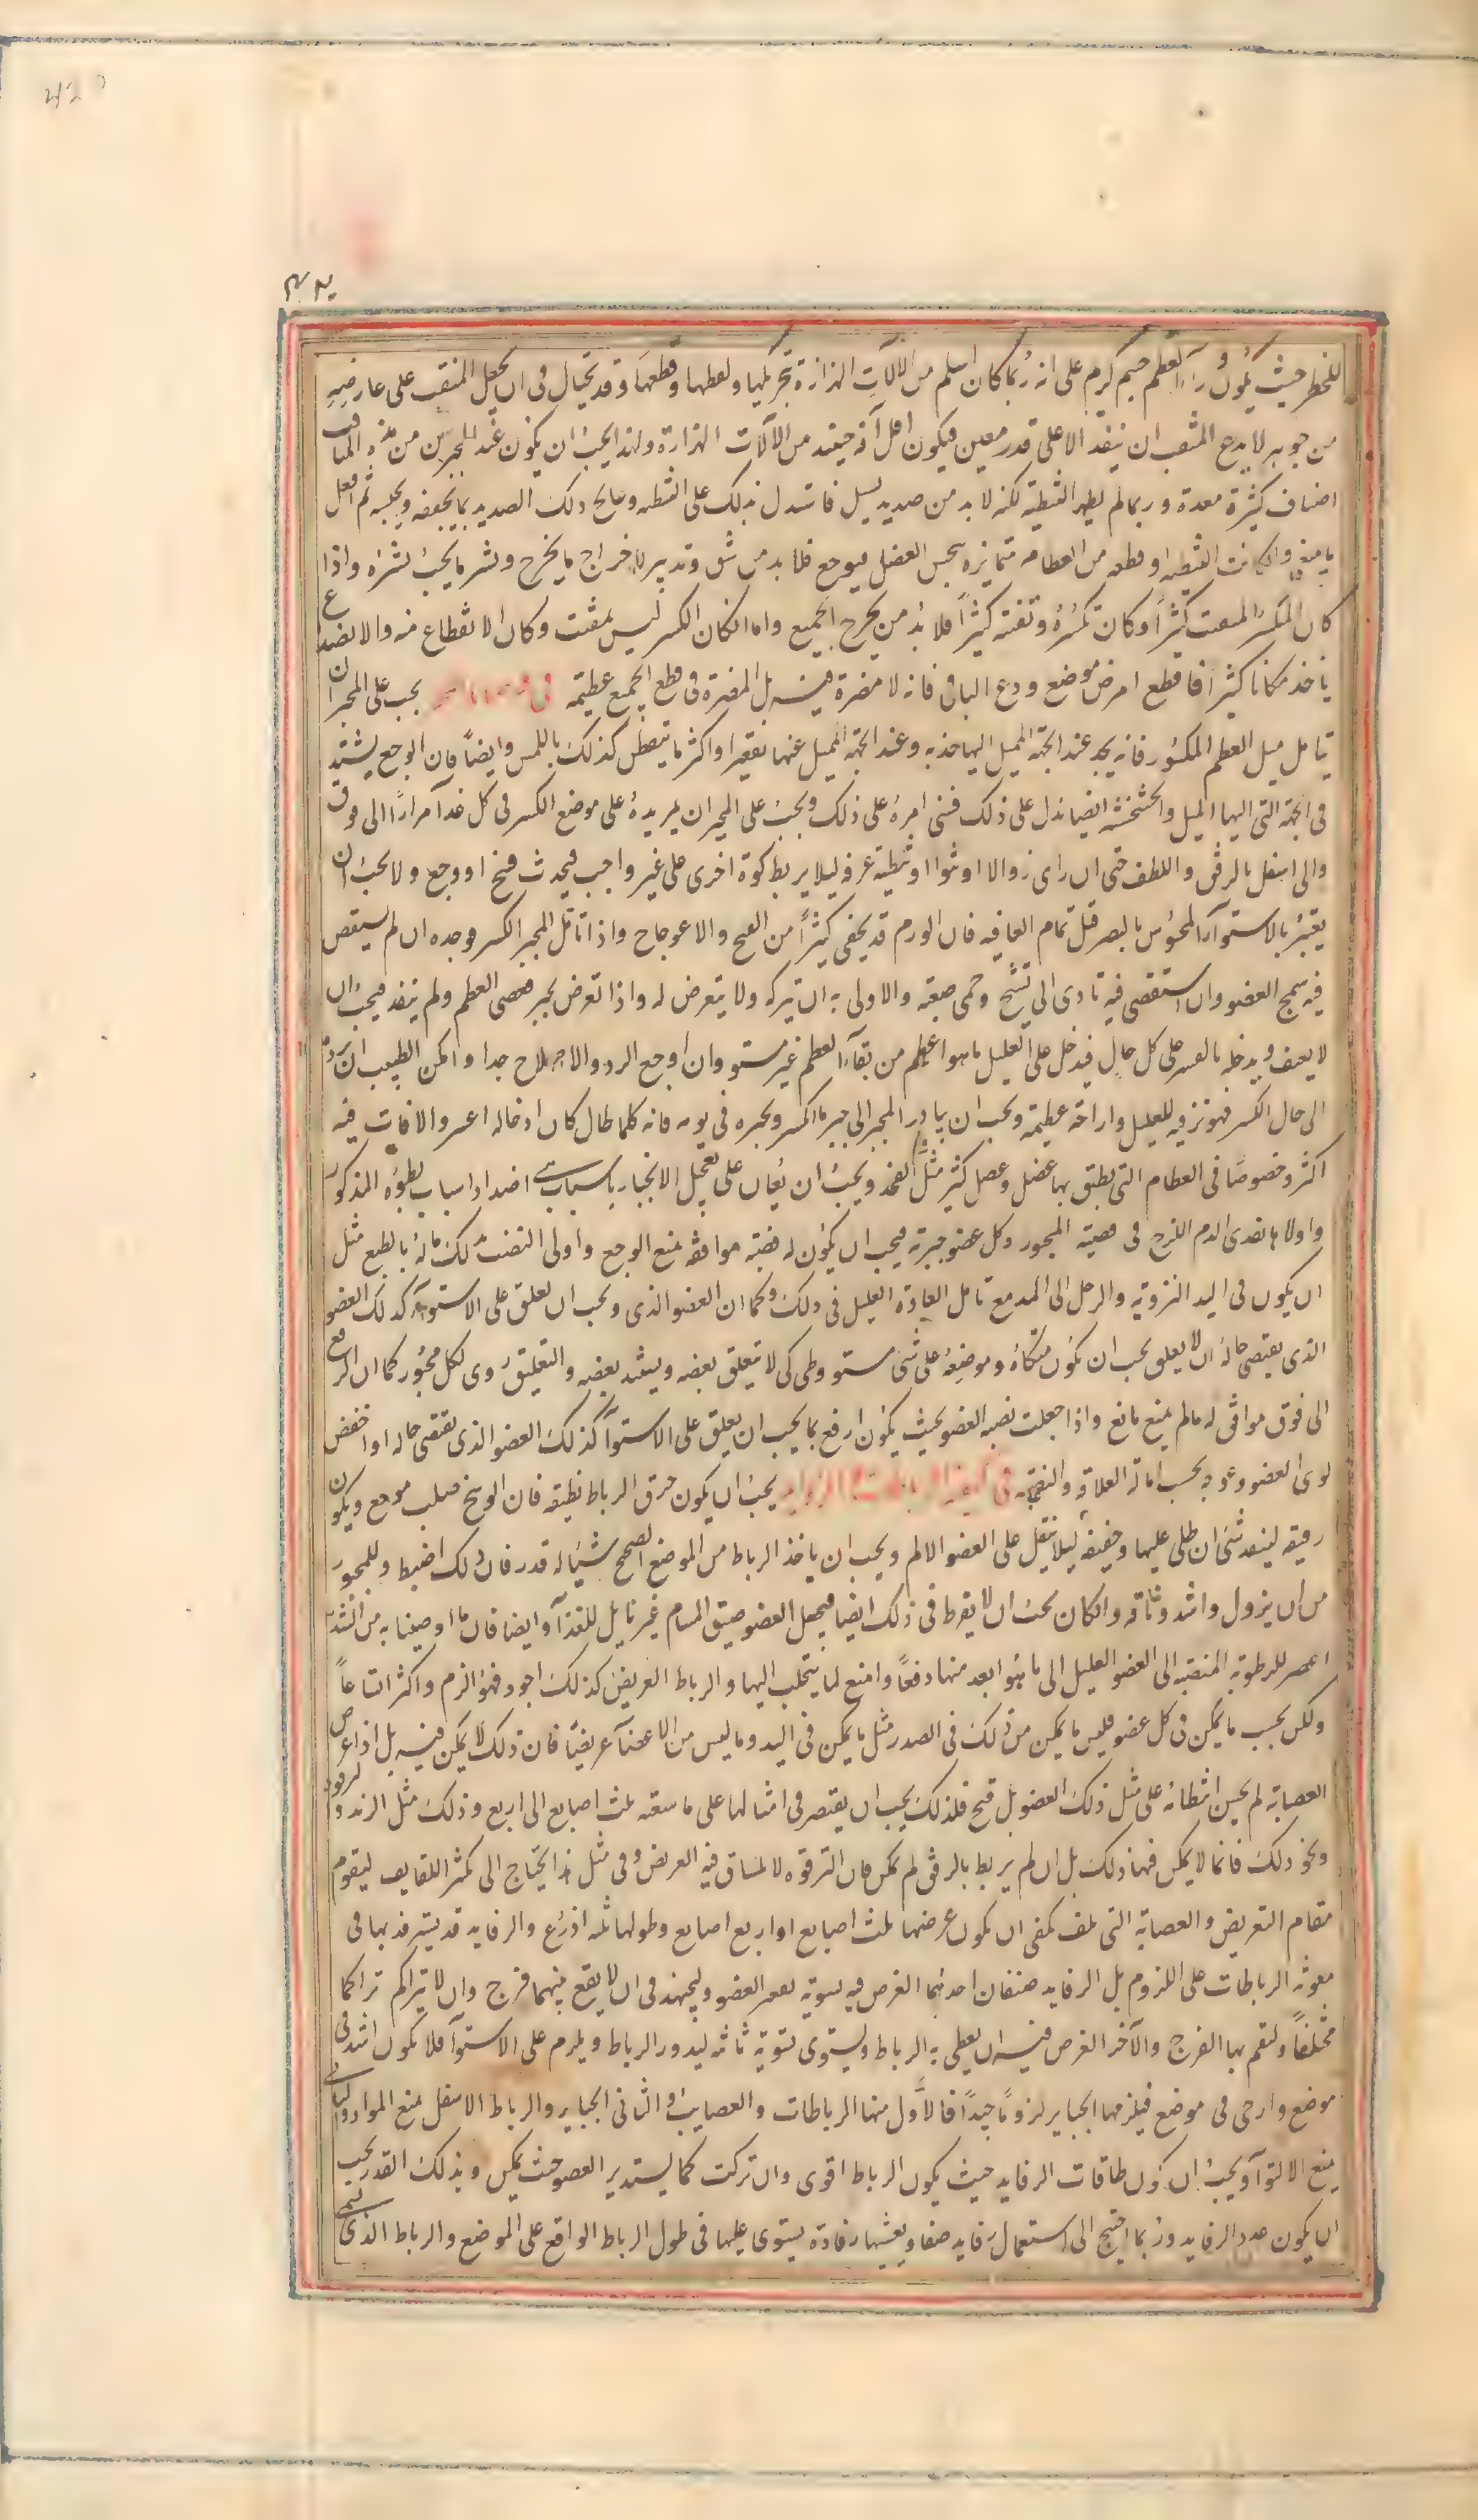 للخطر حيث يكون وراء العظم جسم كريم على انه ربما كان اسلم من الالات الهزازة بتحريكها ولفظها وقطعها وقد يحتال فى ان يجعل المثقب على عارضيه
من جوهر لا يدع المثقب ان ينفذ الا على قدر معين فيكون اقل آفة حينئذ من الآلات الهزازة ولهذا يجب ان يكون عند المجبرين من هذه المثاقب
اصناف كثيرة معدة وربما لم يظهر الشظية لكنه لا بد من صديد يسيل فاستدل بذلك على الشظية وعالج ذلك الصديد بما يجففه ويحبسه ثم افعل
ما ينبغى وان كانت الشظية او قطعه من العظام متمايزه ينخس العضل فيوجع فلا بد من شق وتدبير لاخراج ما يخرج ونشر ما يجب نشره واذا
كان المنكسر المتفتت كثيرا وكان تكسره وتفتته كثيرا فلا بد من يخرج الجميع واما ان كان الكسر ليس بمفتت وكان الانقطاع منه والانصداع
ياخذ مكانا كثيرا فاقطع امرض موضع ودع الباقى فانه لا مضرة فيه بل المضرة فى قطع الجميع عظيمة فى يجب على المجبر ان
يتامل ميل العظم المكسور فانه يجد عند الجهة المميل اليها حدبه وعند الجهة المميل عنها تقعيرا واكثر ما يتفطن كذلك باللمس وايضا فان الوجع يشتد
فى الجهة التى اليها الميل والخشخشه ايضا تدل على ذلك فتنبى امره على ذلك ويجب على المجبر ان يمر يده على موضع الكسر فى كل غدا مرارا الى فوق
والى اسفل بالرفق واللطف حتى ان راى زوالا او نتوا او شظية عرفه ليلا يربط كرة اخرى على غير واجب فيحدث فسخ او وجع ولا يجب ان
يغتر بالاستوآء المحسوس بالبصر قبل تمام العافيه فان الورم قد يخفى كثيرا من القبح والاعوجاج واذا تامل المجبر الكسر وجده ان لم يستقص
فيه سمج العضو وان استقصى فيه تادى الى تشنج وحمى صعبة والاولى به ان يتركه ولا يتعرض له واذا تعرض لجبر فعصى العظم ولم ينفد فيجب ان
لا يعنف ويدخله بالقسر على كل حال فيدخل على العليل ما هو اعظم من بقآء العظم غير مستو وان اوجع الرد والاصلاح جدا وامكن الطبيب ان يرده
الى حال الكسر فهو ترفيه للعليل واراحة عظيمة ويجب ان يبادر المجبر الى جبر ما انكسر ويجبره فى يومه فانه كلما طال كان ادخاله اعسر والافات فيه
اكثر وخصوصا فى العظام التى يطيف بها عضل وعصب كثير مثل الفخذ ويجب ان يعان على تعجيل الانجبار باسباب هى اضداد اسباب بطؤه المذكور
واولاها تغذى الدم اللزج فى قصبة المجبور وكل عضو جبرته فيجب ان يكون له نصبة موافقة تمنع الوجع واولى النصبة لك ماله بالطبع مثل
ان يكون فى اليد التزوية والرجل الى المد مع تامل العادة العليل فى ذلك وكما ان العضو الذى وجب ان يعلق على الاستوآء كذلك العضو
الذى يقتضى حاله ان لا يعلق يجب ان يكون متكاه وموضعه على شئ مستو وطى كى لا يتعلق بعضه ويستند بعضه والتعليق ردى لكل مجبور كما ان الرفع
الى فوق موافق له ما لم يمنع مانع واذا جعلت نصبه العضو بحيث يكون ارفع مما يجب ان يعلق على الاستوآء كذلك العضو الذى يقتضى حاله او اخفض
لوى العضو وعوجه بحسب امالة العلاقة والنصبة فى كيفية الرباطات والرفايد يجب ان يكون خرق الرباط نظيفه فان الوسخ صلب موجع ويكون
رقيقه لينفذ شئ ان طلى عليها وخفيفة ليلا يثقل على العضو الالم ويجب ان ياخذ الرباط من الموضع الصحيح شيئا له قدر فان ذلك اضبط وللمجبور
من ان يزول واشد وثاقه وان كان يجب ان لا يفرط فى ذلك ايضا فيجعل العضو ضيق المسام غير قابل للغذآء وايضا فان ما اوصينا به من الشد
اعصر للرطوبة المنصبة الى العضو العليل الى ما هو ابعد منها دفعا وامنع لما يتحلب اليها والرباط العريض كذلك اجود فهو الزم واكثر اتساعا
ولكن بحسب ما يمكن فى كل عضو فليس ما يمكن من ذلك فى الصدر مثل ما يمكن فى اليد وما ليس من الاعضآء عريضا فان ذلك لا يمكن فيه بل اذا عرض
العصابة لم يحسن انبطانه على مثل ذلك العضو بل قبح فلذلك يجب ان يقتصر فى امثالها على ما سعته ثلث اصابع الى اربع وذلك مثل الزند والترقوه
ونحو ذلك فانما لا يمكن فيها ذلك بل ان لم يربط بالرفق لم يمكن فان الترقوه لا تنساق فيه العريض وفى مثل هذا يحتاج الى تكثير اللفايف ليقوم
مقام التعريض والعصابة التى تلف يكفى ان يكون عرضها ثلث اصابع او اربع اصابع وطولها ثلثه اذرع والرفايد قد يسترفد بها فى
معونة الرباطات على اللزوم بل الرفايد صنفان احدهما الغرض فيه تسوية تقعير العضو وليجتهد فى ان لا يقع بينهما فرج وان لا يتراكم تراكما
مختلفا ولتقم بها الفرج والآخر الغرض فيه ان يغطى به الرباط ويستوى تسوية ثانية ليدور الرباط ويلزم على الاستوآء فلا يكون اشد فى
موضع وارخى فى موضع فيلزمها الجباير لزوما جيدا فالاول منها الرباطات والعصايب والثانى الجباير والرباط الاسفل يمنع المواد والثانى
يمنع الالتوآء ويجب ان يكون طاقات الرفايد حيث يكون الرباط اقوى وان تركت كما يستدير العضو حيث يمكن وبذلك القدر يجب
ان يكون عدد الرفايد وربما احتيج الى استعمال رفايد صغار ويغشيها رفادة يستوى عليها فى طول الرباط الواقع على الموضع والرباط الذى يسمى